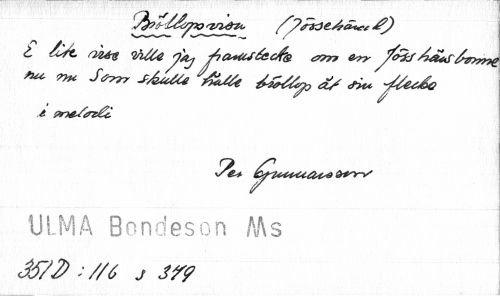 Bröllopsvisa (Jössehärad)
E lite vise ville jag framstecke om en Jösshäsbonne
nu nu Som skulle hålle bröllop åt sin flecke
i melodi
Per Gunnarsson
ULMA Bondeson Ms
351D : 116 s 349